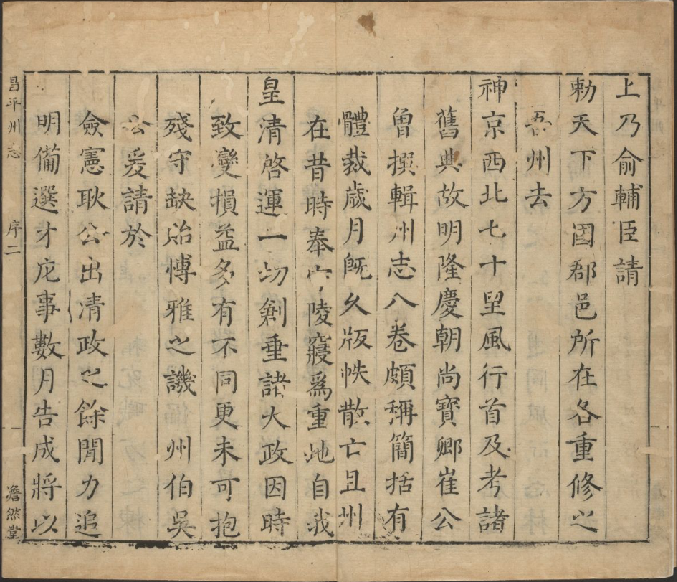 上乃俞輔臣請
勅天下方国郡邑所在各重修之
吾州去
神京西北七十里風行首及考諸
舊典故明隆慶朝尚寶卿崔公
曾撰輯州志八卷頗稱簡括有
體裁歲月既久版帙散亡且州
在昔時奉六陵寢爲重地自我
皇清啓運一切創垂諸大政因時
致變損益多有不同更未可抱
殘守缺貽慱雅之譏州伯吳
公爰請於
僉憲耿公出清政之餘閒力追
明備選才庀事數月告成將以
昌平州志
序二
澹然堂